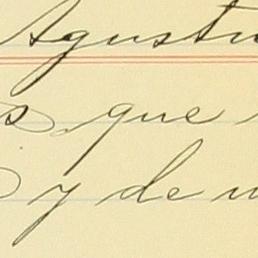 Agustu
s que
y de